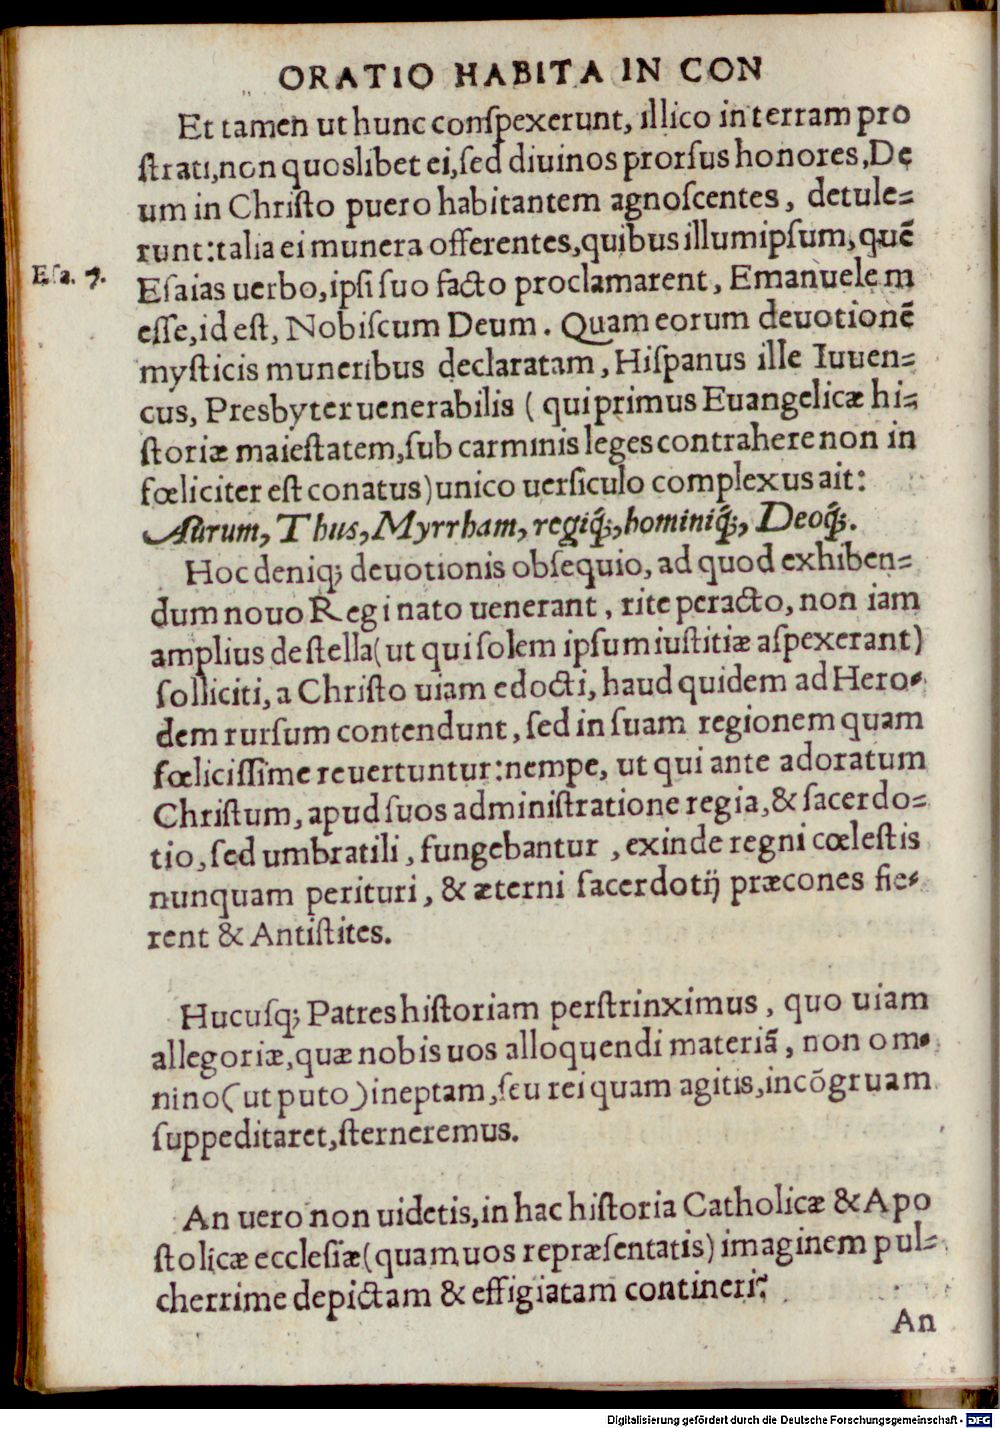 ORATIO HABITA IN CON
Et tamen ut hunc conſpexerunt, illico in terram pro
ſtrati, non quoslibet ei, ſed diuinos prorſus honores, De
um in Chriſto puero habitantem agnoſcentes, detule-
runt: talia ei munera offerentes, quibus illum ipſum, quē
Eſa. 7.
Eſaias uerbo, ipſi ſuo facto proclamarent, Emanuelem
eſſe, id eſt, Nobiſcum Deum. Quam eorum deuotionē
myſticis muneribus declaratam, Hiſpanus ille Iuuen-
cus, Presbyter uenerabilis (qui primus Euangelicæ hi-
ſtoriæ maieſtatem, ſub carminis leges contrahere non in
fœliciter eſt conatus) unico uerſiculo complexus ait:
Aurum, Thus, Myrrham, regiq́;, hominiq́;, Deoq́;.
Hoc deniq; deuotionis obſequio, ad quod exhiben-
dum nouo Regi nato uenerant, rite peracto, non iam
amplius de ſtella (ut qui ſolem ipſum iuſtitiæ aſpexerant)
ſolliciti, a Chriſto uiam edocti, haud quidem ad Hero-
dem rurſum contendunt, ſed in ſuam regionem quam
fœliciſſime reuertuntur: nempe, ut qui ante adoratum
Chriſtum, apud ſuos adminiſtratione regia, & ſacerdo-
tio, ſed umbratili, fungebantur, exinde regni cœleſtis
nunquam perituri, & æterni ſacerdotij præcones fie-
rent & Antiſtites.
Hucuſq; Patres hiſtoriam perſtrinximus, quo uiam
allegoriæ, quæ nobis uos alloquendi materiā, non om-
nino (ut puto) ineptam, ſeu rei quam agitis, incōgruam
ſuppeditaret, ſterneremus.
An uero non uidetis, in hac hiſtoria Catholicæ & Apo
ſtolicæ eccleſiæ (quam uos repræſentatis) imaginem pul-
cherrime depictam & effigiatam contineri?
An
Digitalisierung gefördert durch die Deutsche Forschungsgemeinschaft - DFG